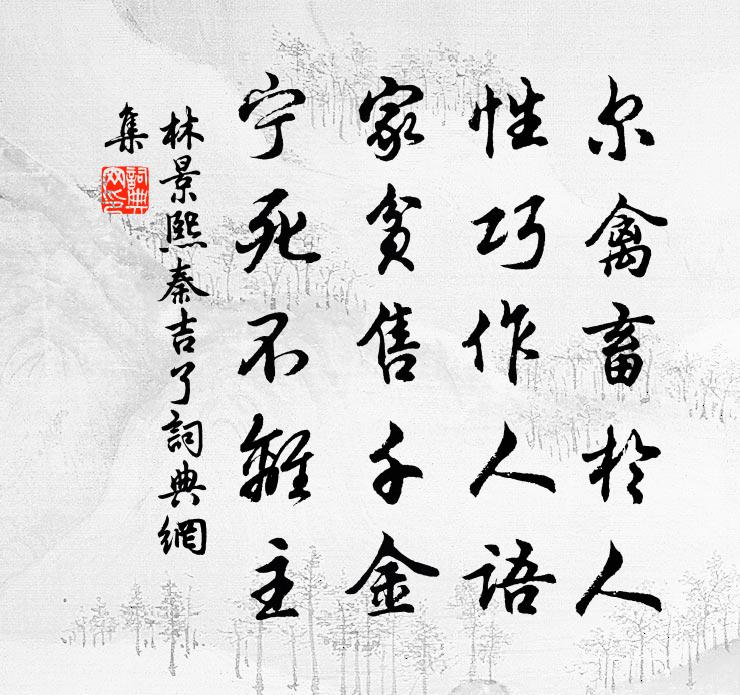 尔禽畜於人
性巧作人语
家贫售千金
宁死不離主
林景熙秦吉了詞典網
集
詞典
网印